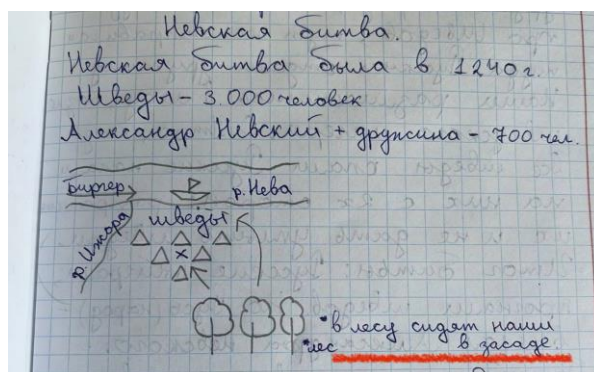 Невская битва.
Невская битва была в 1240 г.
Шведы – 3.000 человек
Александр Невский + дружина – 700 чел.
Биргер
р. Нева
р. Ижора
шведы
*в лесу сидят наши
*лес
в засаде.